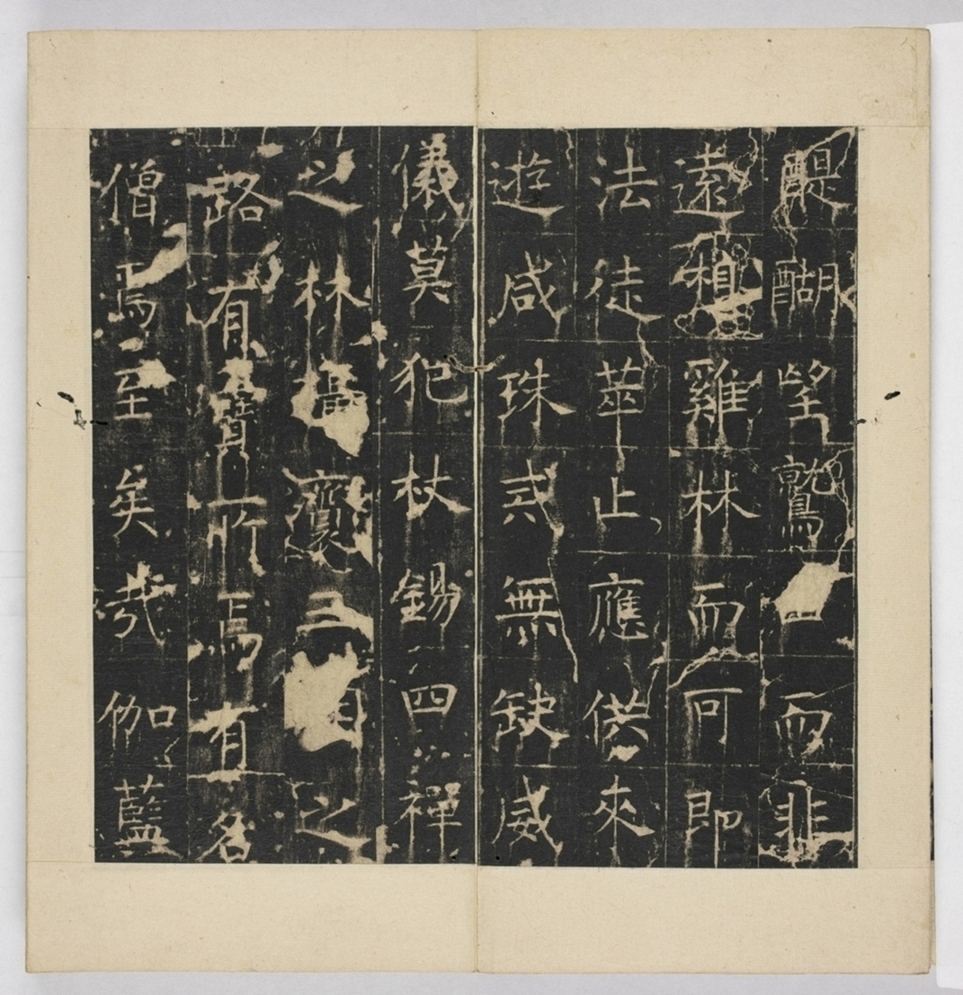 醍醐望鷲而非
遠想雞林而可即
法徒萃止應供來
遊咸珠戒無缺威
儀莫犯杖錫四禪
之林三之
路有寶所焉有名
僧焉至矣哉伽藍